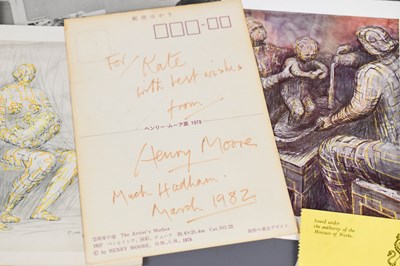 郵便はがき
For Kate
with best wishes
from
ヘンリー・ムーア展 1978
Henry Moore
Much Hadham.
March 1982
芸術家の母 The Artist's Mother
© by HENRY MOORE,
Issued under
the authority of the
Minister of Works.